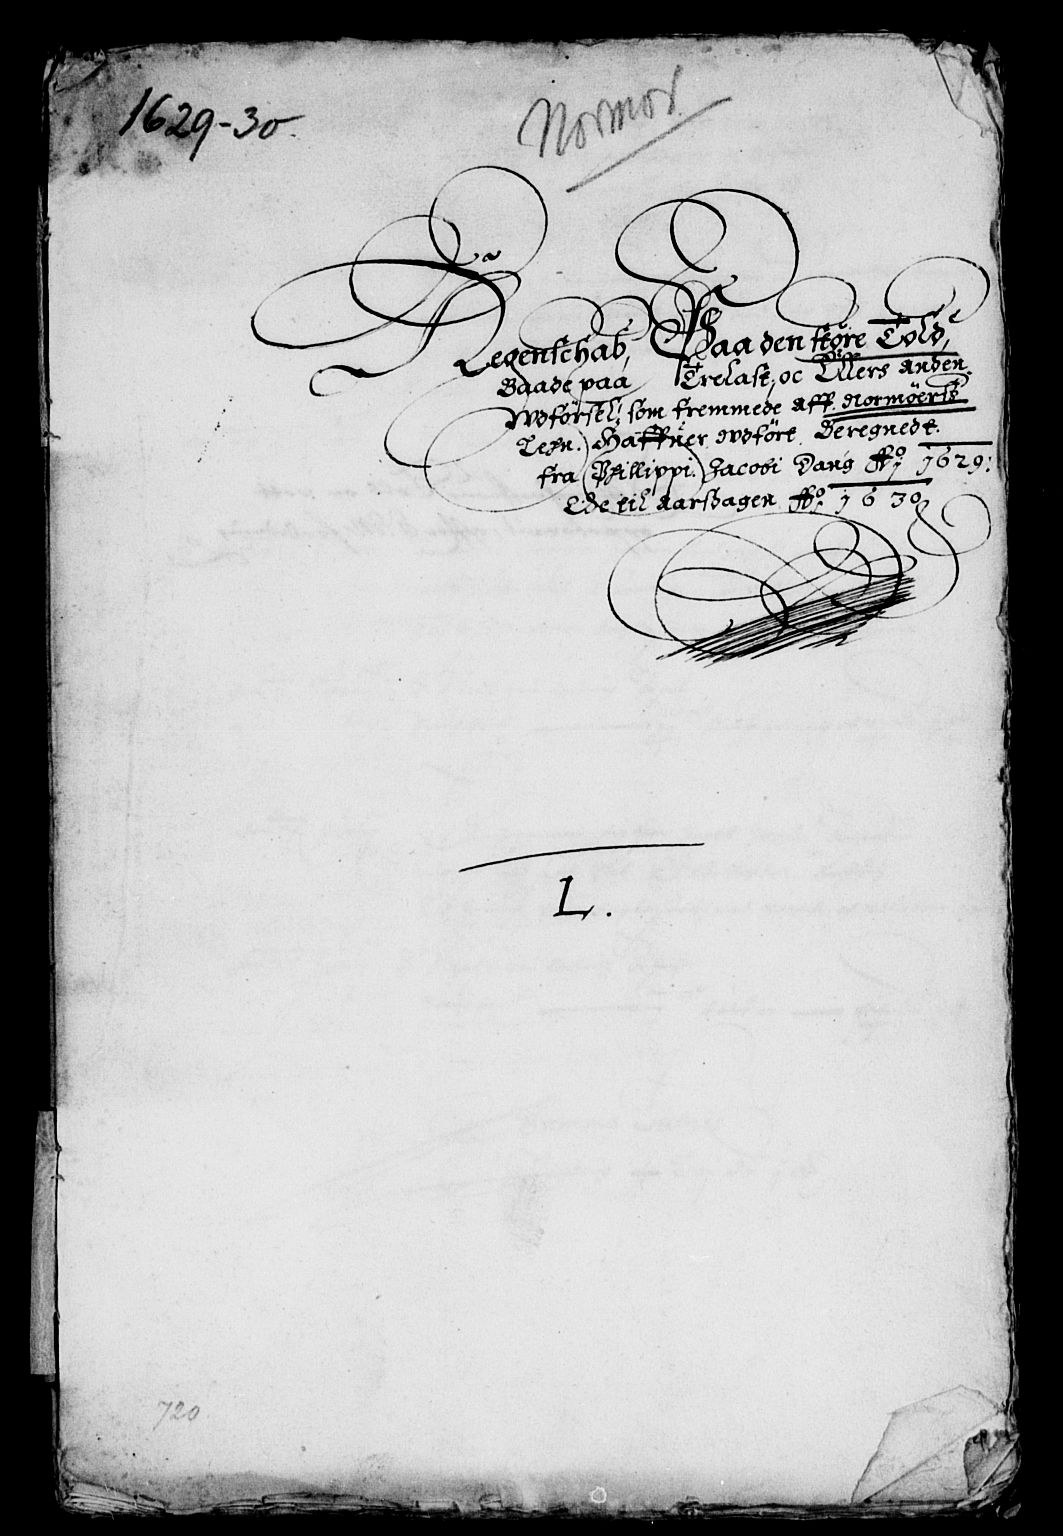 1629-30.
Normør
Regenschab, Paa den störe Told,
Baade paa Trelast, oc Ellers anden
Wdförsel, som fremmede aff Normöerss
Lehn. Haffner wdföre, Beregnede.
fra Philippi. Jacobi Dag Ao 1629:
Ede til aarssdagen Ao 1630
L.
720